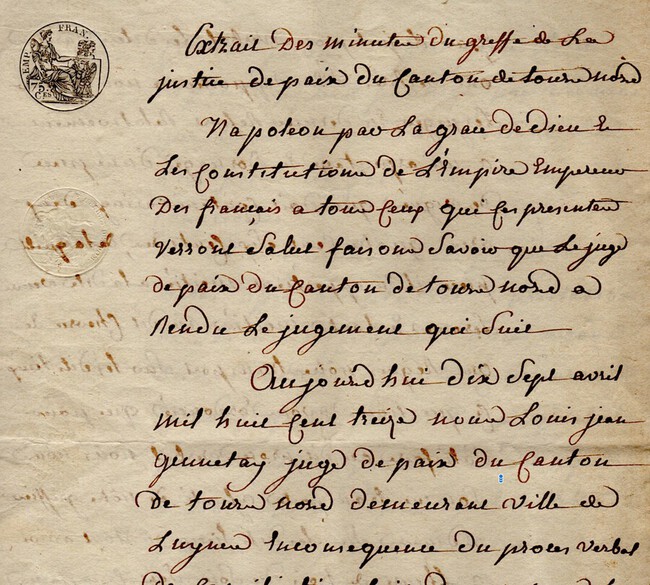 EMP. FRAN.
75
Ces
Extrait Des minutes du greffe de La
justice de paix du Canton de tours nord
Napoleon par La grace de dieu &
Les Constitutions de L'Empire Empereur
Des français a tous Ceux qui Ces presentes
verront Salut faisons Savoir que Le juge
de paix du Canton de tours nord a
Rendu Le jugement qui Suit
Aujourd'hui dix Sept avril
mil huit Cent treize nous Louis jean
gennetay juge de paix du Canton
de tours nord demeurant ville de
Luynes En consequence du proces verbal